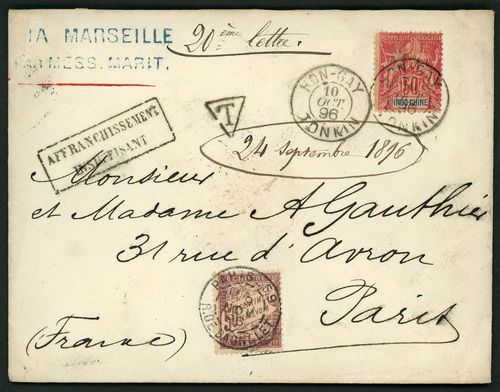 VIA MARSEILLE
PAR MESS. MARIT.
20ème lettre.
HON-GAY
10
OCT
96
TONKIN
HON-GAY
96
TONKIN
INDO-CHINE
T
AFFRANCHISSEMENT
INSUFFISANT
24 septembre 1896
Monsieur
et Madame A Gauthier
31 rue d'Avron
Paris
(France)
PARIS 59